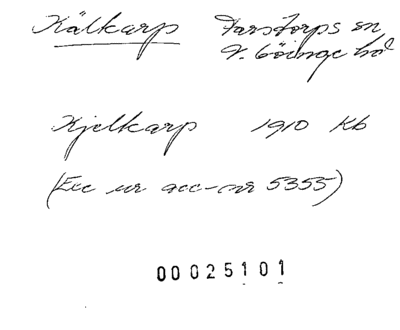 Kälkarp Farstorps sn
V. Göinge hd
Kjelkarp 1910 Kb
(Exc ur acc-nr 5355)
00025101